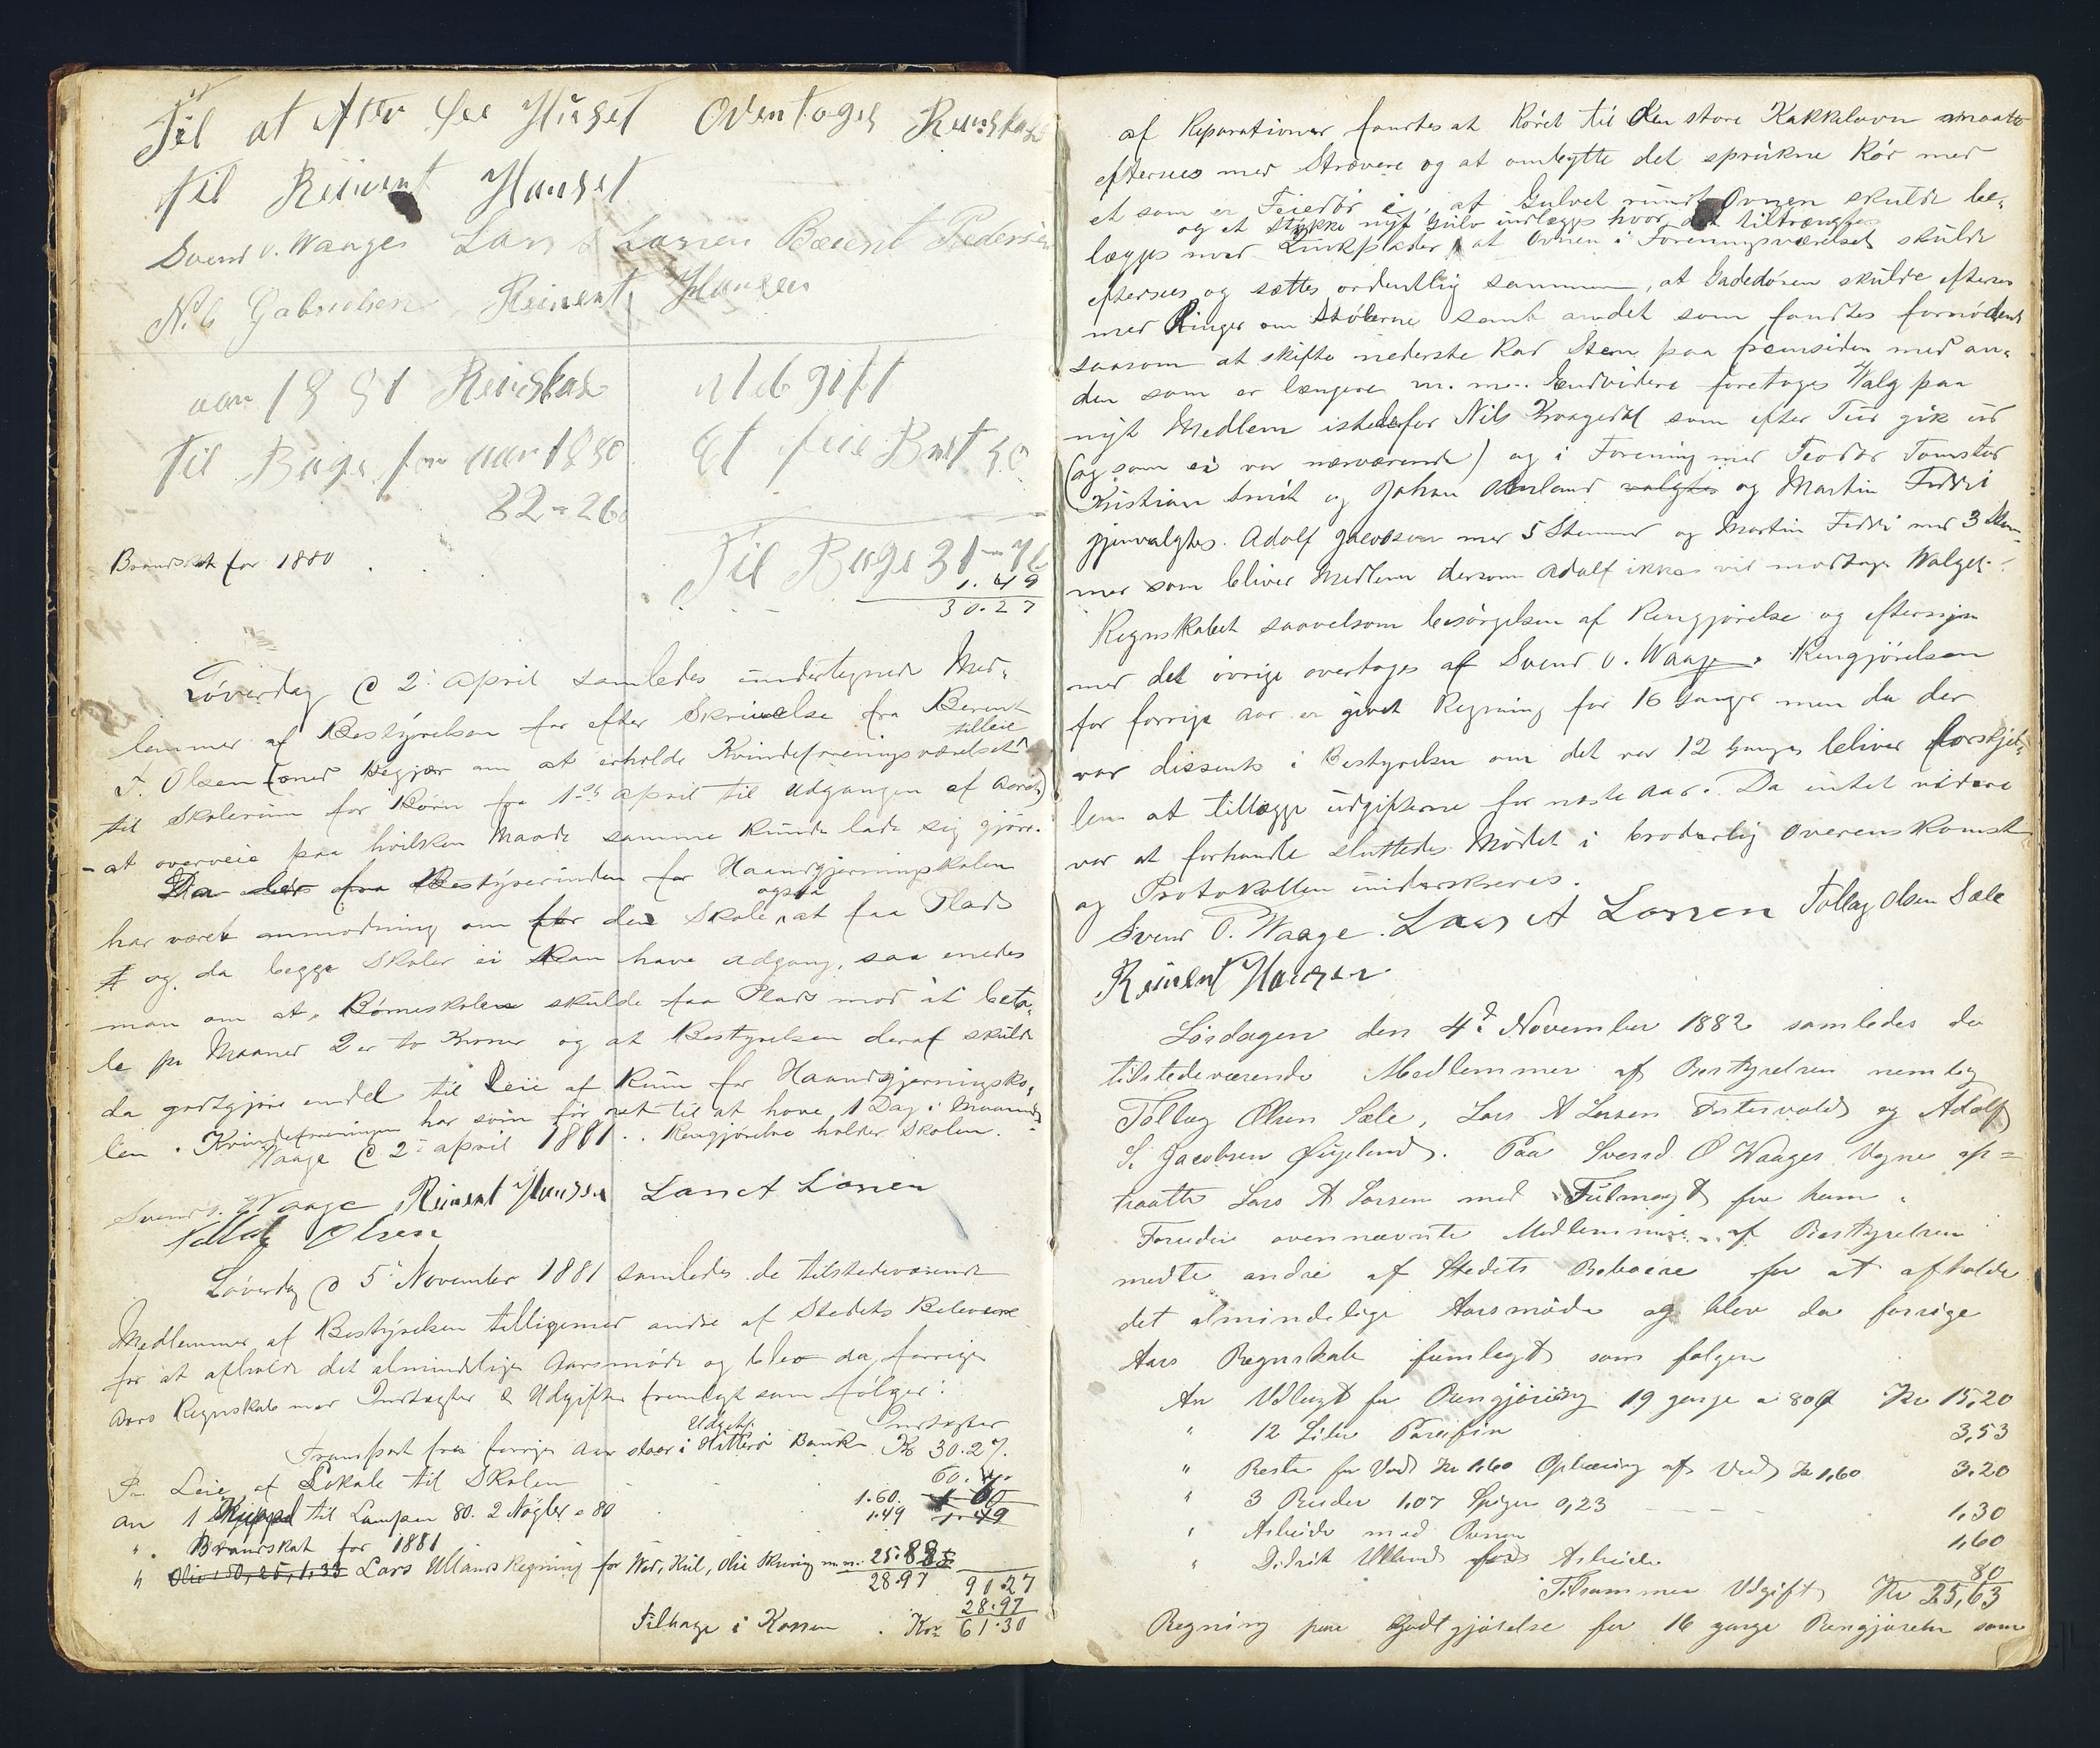 Til at efter see Huset Overtages Reinskab
til Reinert Hansel
Svend O. Waages Lars A Larsen Bærent Pedersen
N. G Gabrielsen Reinert Hansen
aar 1881 Reinskab
til Bage for aar 1880
32 - 26
Brandskat for 1880
utdgift
Et feie Bret 50
Til Bage 31 - 76
1.49
30.27
Löverdag @ 2: April samledes undertegnede Med-
lemmer af Bestÿrelsen for efter Skrivelse fra Berent
T. Olsen (med Begjær om at erholde Kvindeforeningsværelset tilleie
til Skolerum for Börn fra 1ste April til Udgangen af Aaret)
- at overveie paa hvilken Maade samme kunde lade sig gjöre.
Da der fra Bestÿrerinden for Haandgjerningskolen
har været anmodning om for den Skole også at faa Plads
og da begge Skoler ei kan have adgang, saa enedes
man om at, Börneskolen skulde faa Plads mod at beta-
le pr Maaned 2 er to Kroner og at Bestyrelsen deraf skulde
da godtgjöre endel til Leie af Rum for Haandgjerningssko-
len. Kvindeforeningen har som för ret til at have 1 Dag i Maaneden
Waage @ 2: April 1881. Rengjörelse holder Skolen.
Svend O. Waage Reinert Hansen Lars A Larsen
Tollag Olsen
Löverdag @ 5: November 1881 samledes de tilstedeværende
Medlemmer af Bestÿrelsen tilligemed andre af Stedets Beboere
for at afholde det almindelige Aarsmöde og blev da forrige
Aars Regnskab med Indtægter & Udgifter fremlagt som fölger:
Udgift. Indtægter
Transport fra forrige Aar staar i Hitterö Bank Kr 30.27.
Pr Leie af Lokale til Skolen 60. "
An 1 Kuppel til Lampen 80. 2 Nögler a 80 1.60.
". Brandskat for 1881 1.49 1.49
" Lars Ullands Regning for Ved, Kul, Olie Skuring m.m. 25.88
28.97 90.27
28.97
Tilbage i Kassen . Kr 61.30
af Reparationer fandtes at Röret til den store Kakkelovn maate
eftersees med Strævere og at ombytte det sprukne Rör med
et som er Feiedör i, at Gulvet rundt Ovnen skulde be-
og et Stykke nyt Gulv indlægges hvor det tiltrænges
lægges med Zinkplader, at Ovnen i Foreningsværelset skulde
eftersees og sættes ordentlig sammen, at Gadedören skulde eftersees
med Ringer om Stölerne samt andet som fandtes fornödent
saasom at skifte nederste Rad Steen paa fremsiden med an-
den som er længere m. m. Endvidere foretoges Valg paa
nyt Medlem istedetfor Nils Kraagedal som efter Tur gik ud
(og som ei var nærværende) og i Forening med Teodor Tomstad
Kristian Smit og Johan Aamland valgtes og Martin Feddi
gjenvalgtes. Adolf Jacobsen med 5 Stemmer og Martin Feddi med 3 Stem-
mer som bliver Medlem dersom Adolf ikke vil modtage Valget.
Regnskabet saavelsom besörgelsen af Rengjörelse og eftersyn
med det övrige overtages af Svend O. Waage. Rengjörelsen
for forrige Aar er givet Regning for 16 Gange men da der
var dissents i Bestyrelsen om det var 12 Gange bliver forskjel-
len at tillægge udgifterne for næste Aar. Da intet videre
var at forhandle sluttedes Mödet i broderlig Overenskomst
og Protokollen underskreves.
Svend O. Waage. Lars A Larsen Tollag Olsen Sæle
Reinert Hansen
Lördagen den 4de November 1882 samledes de
tilstedeværende Medlemmer af Bestyrelsen nemlig
Tollag Olsen Sæle, Lars A Larsen Østervold og Adolf
S. Jacobsen Øigelund. Paa Svend O Waages Vegne op=
traatte Lars A Larsen med Fulmagt fra ham.
Foruden ovennævnte Medlemmer af Bestyrelsen
mødte andre af Stedets Beboere for at afholde
det almindelige Aarsmøde og blev da forrige
Aars Regnskab fremlagt som følger
An Udlagt for Rengjøring 19 gange a 80 ø Kr 15,20
" 12 Liter Parafin 3,53
" Rest for Ved Kr 1,60 Ophugning af Ved Kr 1,60 3,20
" 3 Ruder 1,07 Spiger 0,23 1,30
" Arbeide med Ovnen 1,60
" Didrik Ulland for Arbeide 80
Tilsammen Udgift Kr 25,63
Regning paa Godtgjørelse for 16 gange Rengjørelse som